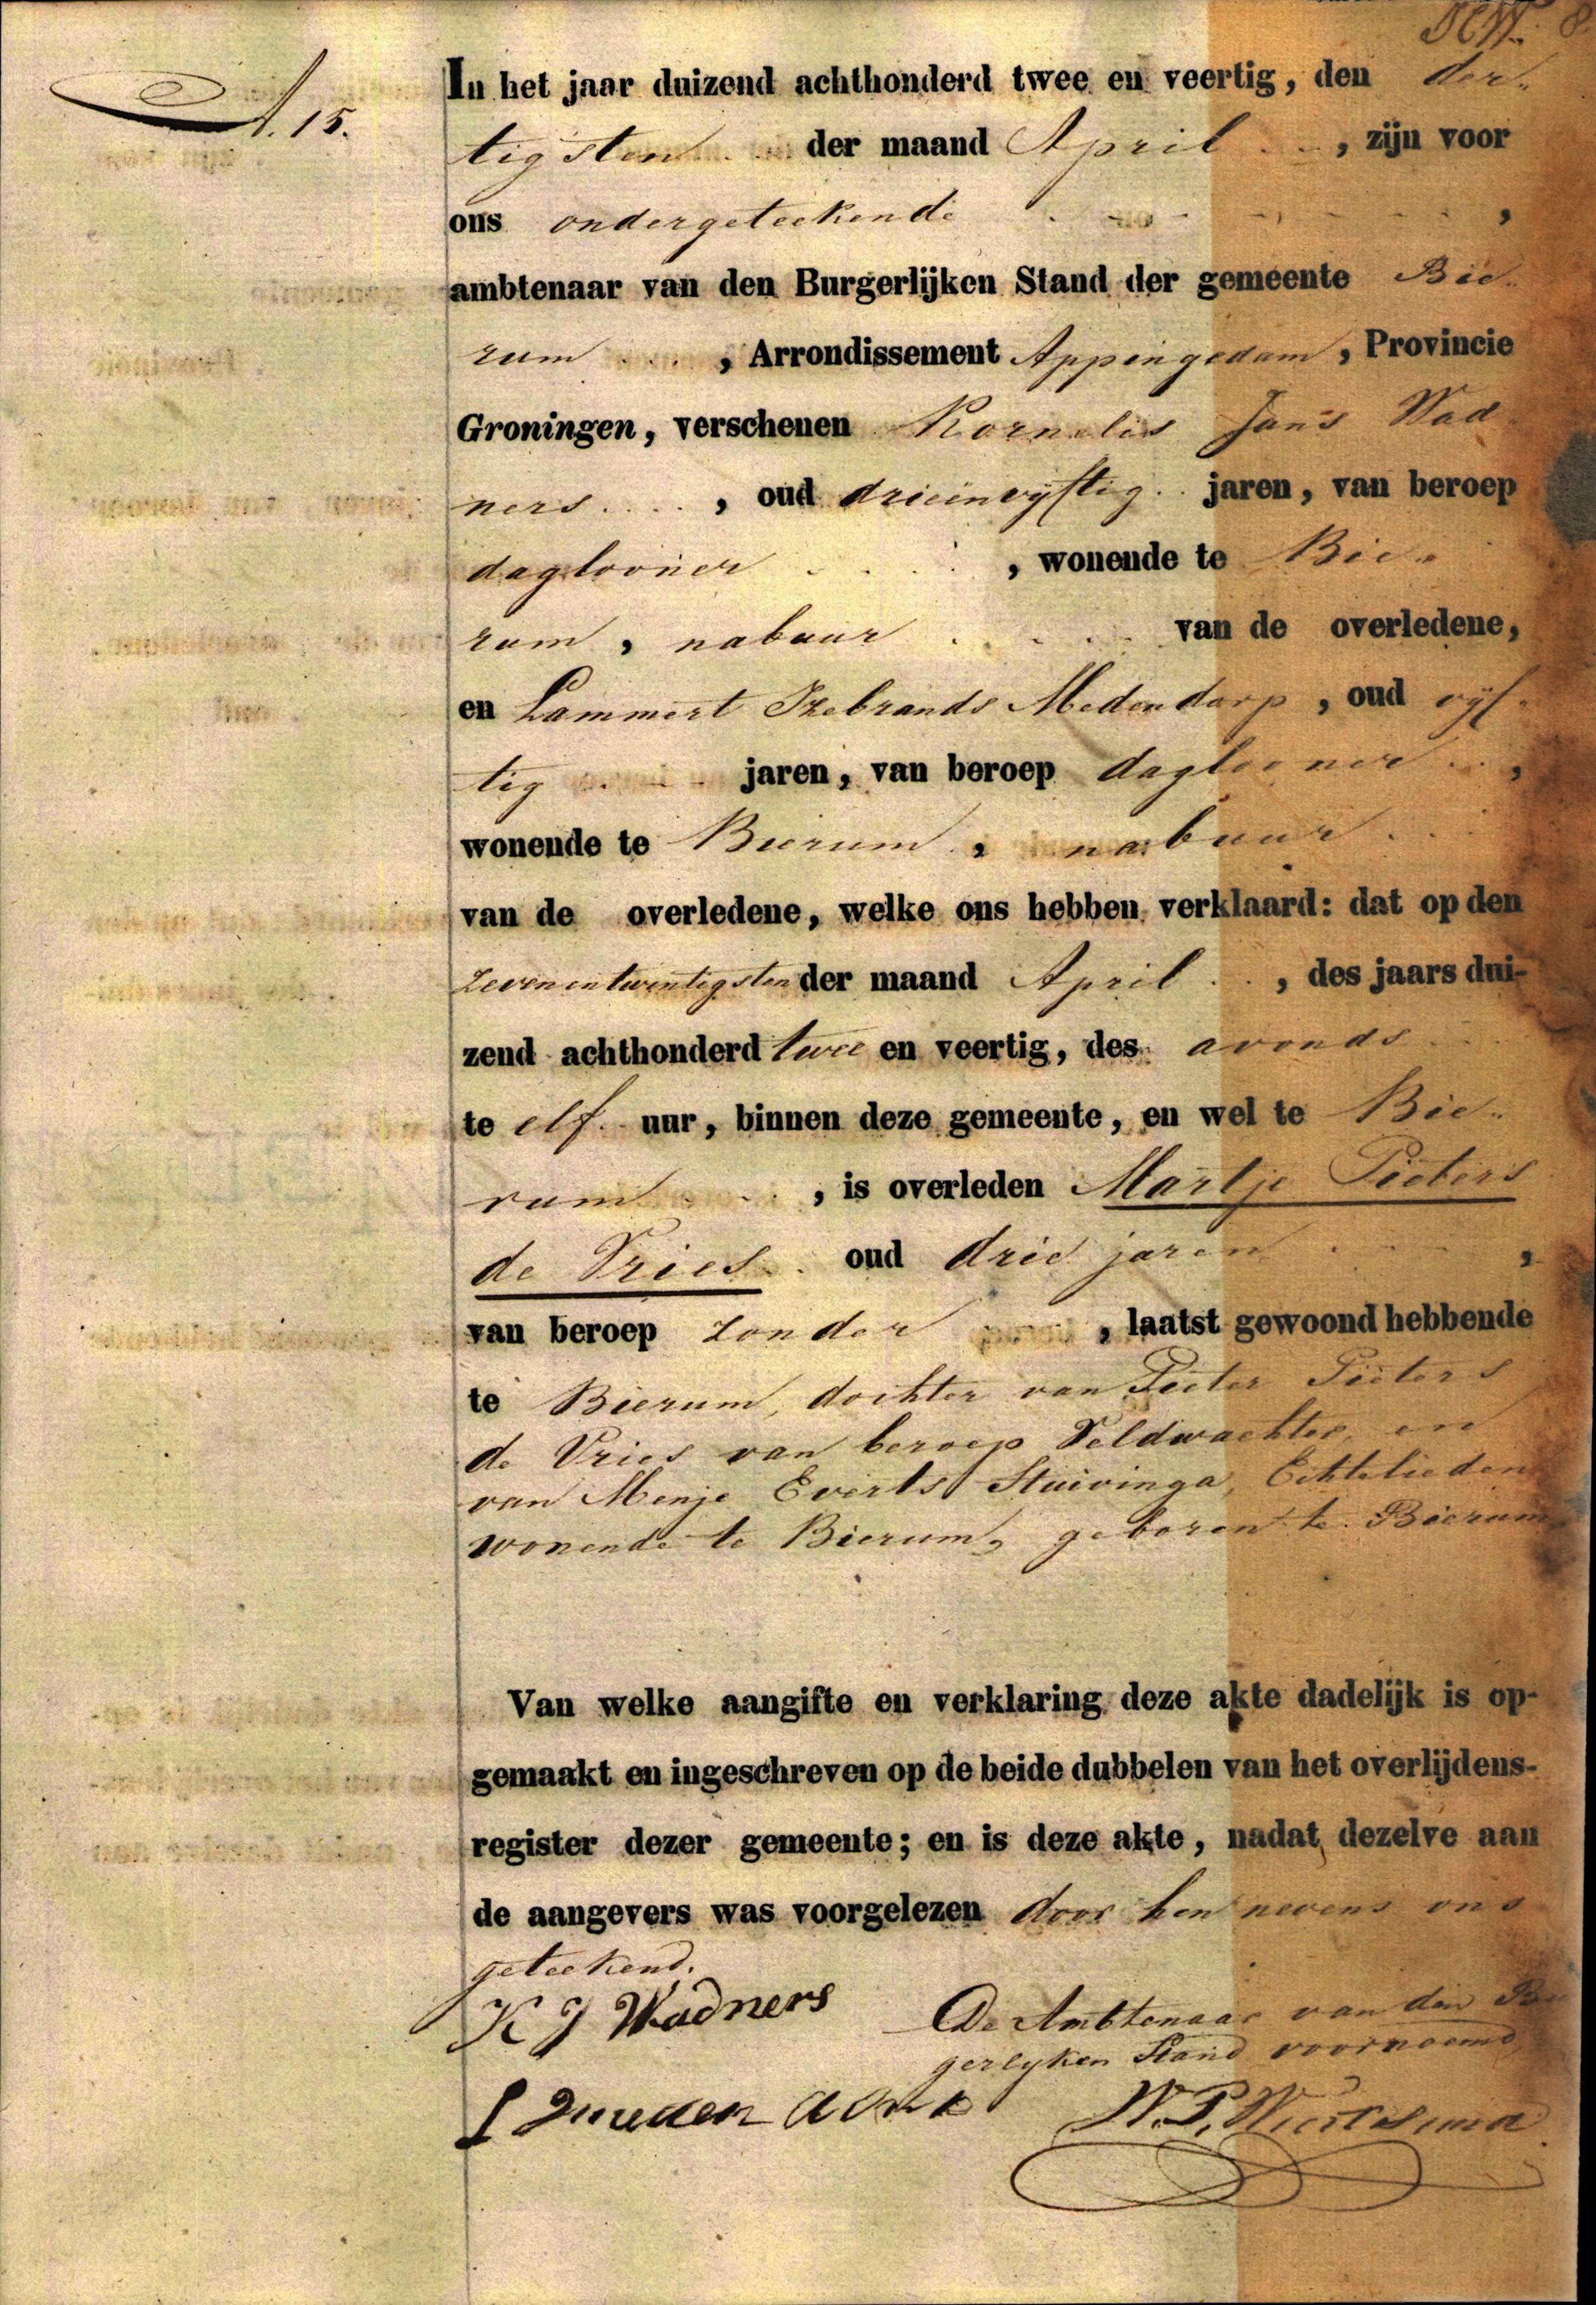 A. 15.
In het jaar duizend achthonderd twee en veertig, den der-
tigsten der maand April, zijn voor
ons ondergeteekende,
ambtenaar van den Burgerlijken Stand der gemeente Bie-
rum, Arrondissement Appingedam, Provincie
Groningen, verschenen Kornelis Jans Wad
ners, oud drieenvyftig jaren, van beroep
daglooner, wonende te Bie-
rum, nabuur van de overledene,
en Lammert Izebrands Medendorp, oud vyf-
tig jaren, van beroep daglooner,
wonende te Bierum, nabuur
van de overledene, welke ons hebben verklaard: dat op den
zevenentwintigsten der maand April, des jaars dui-
zend achthonderd twee en veertig, des avonds
te elf uur, binnen deze gemeente, en wel te Bie-
rum, is overleden Martje Pieters
de Vries oud drie jaren,
van beroep zonder, laatst gewoond hebbende
te Bierum, dochter van Pieter Pieters
de Vries van beroep Veldwachter, en
van Menje Everts Stuivinga, Echtelieden
wonende te Bierum, geboren te Bierum
Van welke aangifte en verklaring deze akte dadelijk is op-
gemaakt en ingeschreven op de beide dubbelen van het overlijdens-
register dezer gemeente; en is deze akte, nadat dezelve aan
de aangevers was voorgelezen door hen nevens ons
geteekend.
K J Wadners
De Ambtenaar van den
gerlyken Stand voornoemd
W. P. Wiertsema